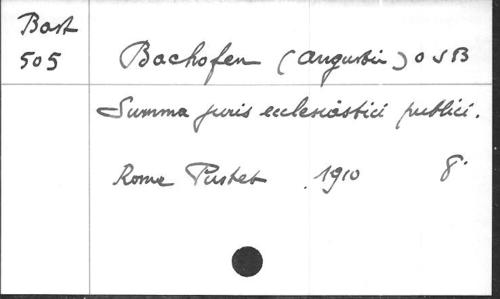 Bast
505
Bachofen (Augustin) OSB
Summa juris ecclesiastici publici.
Rome Pustet 1910 8°